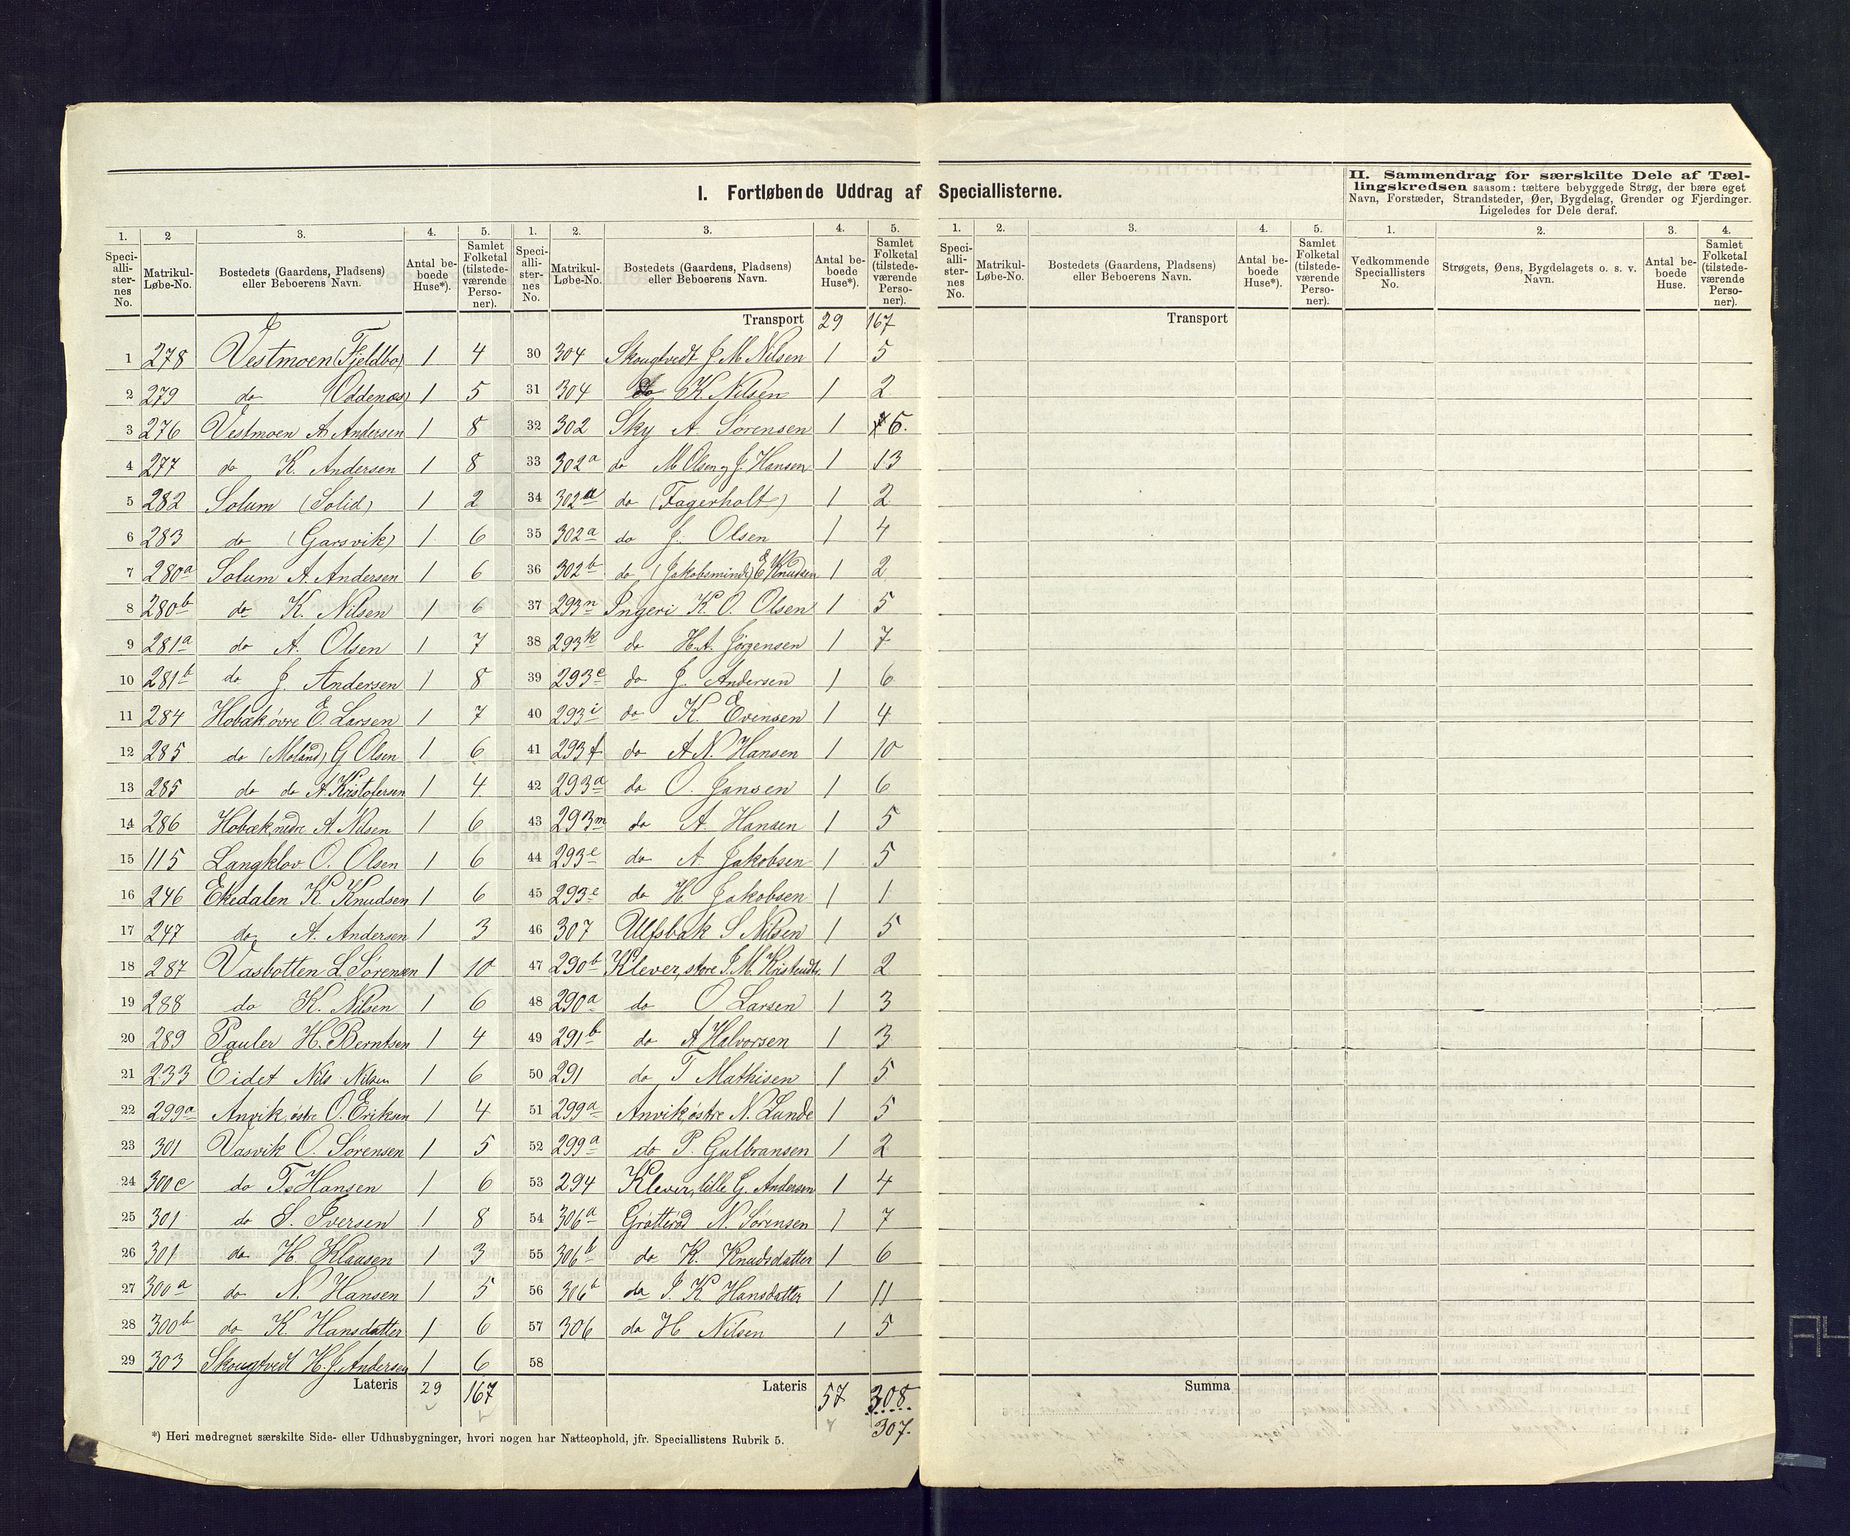 I. Fortløbende Uddrag af Speciallisterne.
II. Sammendrag for særskilte Dele af Tællingskredsen saasom: tættere bebyggede Strøg, der bære eget Navn, Forstæder, Strandsteder, Øer, Bygdelag, Grender og Fjerdinger. Ligeledes for Dele deraf.
1. 2 3. 4. 5. 1. 2. 3. 4. 5. 1. 2. 3. 4. 5. 1. 2. 3. 4.
Speciallisternes No. Matrikul-Løbe-No. Bostedets (Gaardens, Pladsens) eller Beboerens Navn. Antal beboede Huse*). Samlet Folketal (tilstedeværende Personer).
Speciallisternes No. Matrikul-Løbe-No. Bostedets (Gaardens, Pladsens) eller Beboerens Navn. Antal beboede Huse*). Samlet Folketal (tilstedeværende Personer).
Speciallisternes No. Matrikul-Løbe-No. Bostedets (Gaardens, Pladsens) eller Beboerens Navn. Antal beboede Huse*). Samlet Folketal (tilstedeværende Personer).
Vedkommende Speciallisters No. Strøgets, Øens, Bygdelagets o. s. v. Navn. Antal beboede Huse. Samlet Folketal (tilstedeværende Personer).
1 278 Vestmoen (Fjeldbo) 1 4
2 279 do (Oddenæs) 1 5
3 276 Vestmoen A Andersen 1 8
4 277 do K. Andersen 1 8
5 282 Solum (Solid) 1 2
6 283 do (Garsvik) 1 6
7 280a Solum A. Andersen 1 6
8 280b do K. Nilsen 1 6
9 281a do A. Olsen 1 7
10 281b do J. Andersen 1 8
11 284 Hobæk øvre E. Larsen 1 7
12 285 do (Moland) G Olsen 1 6
13 285 do do A. Kristofersen 1 4
14 286 Hobæk, nedre A. Nilsen 1 6
15 115 Langklov O. Olsen 1 6
16 246 Ekedalen K Knudsen 1 6
17 247 do A. Andersen 1 3
18 287 Vasbotten L. Sørensen 1 10
19 288 do K. Nilsen 1 6
20 289 Pauler H. Berntsen 1 4
21 233 Eidet Nils Nilsen 1 6
22 299a Anvik, østre O. Eriksen 1 4
23 301 Vasvik O. Sørensen 1 5
24 300c do T. Hansen 1 6
25 301 do S. Iversen 1 8
26 301 do H. Klausen 1 3
27 300a do N. Hansen 1 5
28 300b do K. Hansdatter 1 6
29 303 Skougtvedt H. J. Andersen 1 6
Lateris 29 167
Transport 29 167
30 304 Skougtvedt J. M. Nilsen 1 5
31 304 do K Nilsen 1 2
32 302 Sky A Sørensen 1 6.
33 302a do M Olsen og J. Hansen 1 13
34 302a do (Fagerholt) 1 2
35 302a do J. Olsen 1 4
36 302b do (Jakobsminde) E Knudsen 1 2
37 293n Ingeri K. O. Olsen 1 5
38 293k do H.A. Jørgensen 1 7
39 293c do J. Andersen 1 6
40 293i do K. Evensen 1 4
41 293f do A N. Hansen 1 10
42 293a do O. Jansen 1 6
43 293m do A. Hansen 1 5
44 293e do A. Jakobsen 1 5
45 293e do H. Jakobsen 1 1
46 307 Ulfsbak S Nilsen 1 5
47 290b Klever, store J. M. Kristendtr. 1 2
48 290a do O Larsen 1 3
49 291b do A Halvorsen 1 3
50 291 do T Mathisen 1 5
51 299a Anvik østre N. Lunde 1 5
52 299a do P. Gulbransen 1 2
53 294 Klever, lille G. Andersen 1 4
54 306a Grøtterød N. Sørensen 1 7
55 306b do K. Knudsdatter 1 6
56 306b do J. K Hansdatter 1 11
57 306 do H. Nilsen 1 5
58
Lateris 57 308
307.
Transport
Summa
*) Heri medregnet særskilte Side- eller Udhusbygninger, hvori nogen har Natteophold, jfr. Speciallistens Rubrik 5.
A4